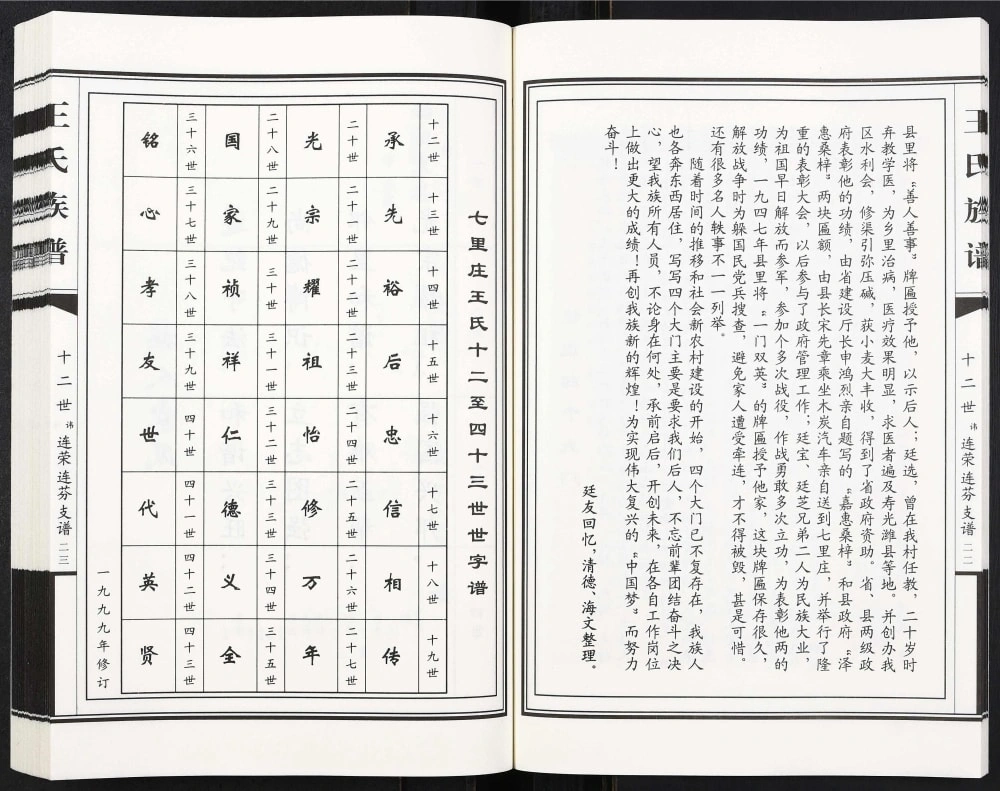 王氏族谱
十二世 讳 连荣连芬支谱 二二
县里将“善人善事”牌匾授予他，以示后人；廷选，曾在我村任教，二十岁时
弃教学医，为乡里治病，医疗效果明显，求医者遍及寿光潍县等地。并创办我
区水利会，修渠引弥压碱，获小麦大丰收，得到了省政府资助。省、县两级政
府表彰他的功绩，由省建设厅长申鸿烈亲自题写的“嘉惠桑梓”和县政府“泽
惠桑梓”两块匾额，由县长宋先章乘坐木炭汽车亲自送到七里庄，并举行了隆
重的表彰大会，以后参与了政府管理工作；廷宝、廷芝兄弟二人为民族大业，
为祖国早日解放而参军，参加个多次战役，作战勇敢多次立功，为表彰他两的
功绩，一九四七年县里将“一门双英”的牌匾授予他家，这块牌匾保存很久，
解放战争时为躲国民党兵搜查，避免家人遭受牵连，才不得被毁，甚是可惜。
还有很多名人轶事不一一列举。
随着时间的推移和社会新农村建设的开始，四个大门已不复存在，我族人
也各奔东西居住，写写四个大门主要是要求我们后人，不忘前辈团结奋斗之决
心，望我族所有人员，不论身在何处，承前启后，开创未来，在各自工作岗位
上做出更大的成绩！再创我族新的辉煌！为实现伟大复兴的“中国梦”而努力
奋斗！
廷友回忆，清德、海文整理。
七里庄王氏十二至四十三世世字谱
十二世 十三世 十四世 十五世 十六世 十七世 十八世 十九世
承 先 裕 后 忠 信 相 传
二十世 二十一世 二十二世 二十三世 二十四世 二十五世 二十六世 二十七世
光 宗 耀 祖 怡 修 万 年
二十八世 二十九世 三十世 三十一世 三十二世 三十三世 三十四世 三十五世
国 家 祯 祥 仁 德 义 全
三十六世 三十七世 三十八世 三十九世 四十世 四十一世 四十二世 四十三世
铭 心 孝 友 世 代 英 贤
一九九九年修订
王氏族谱
十二世 讳 连荣连芬支谱 二三